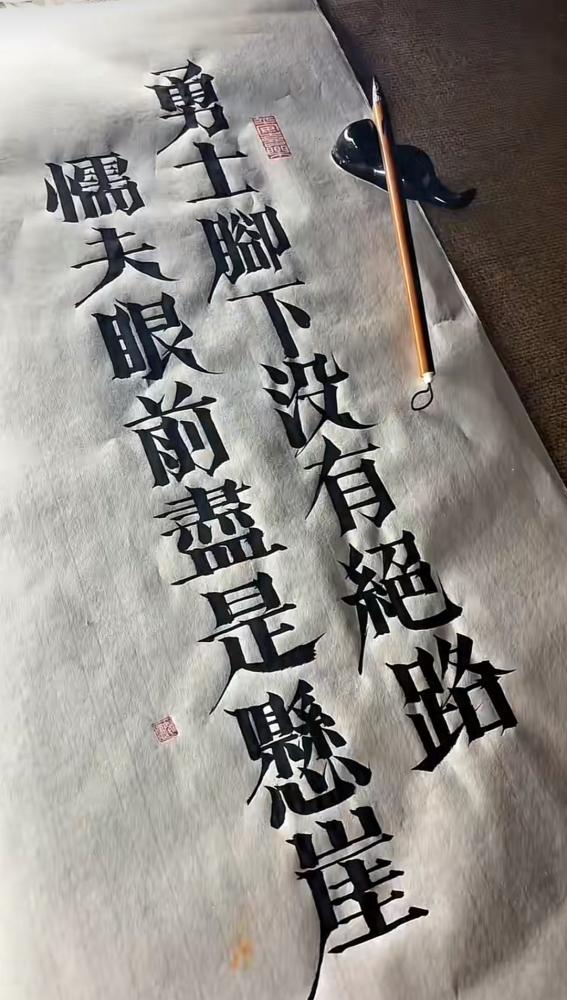 勇士腳下没有絕路
懦夫眼前盡是懸崖